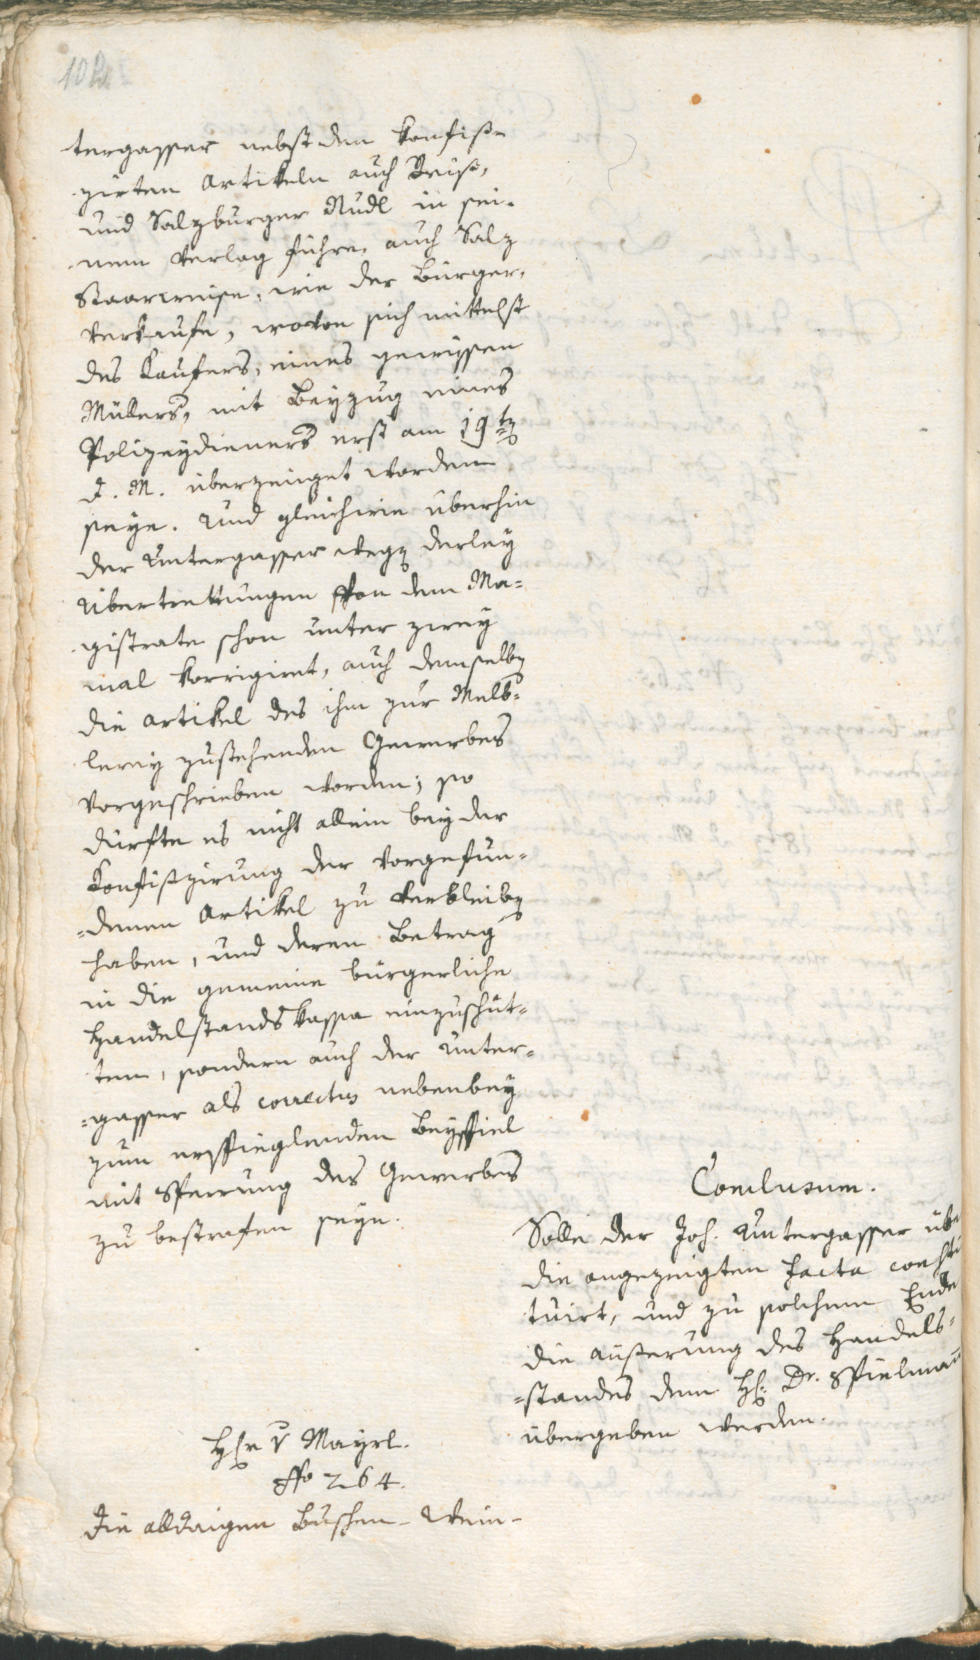 102
tergasser nebst den konfisz¬
zirten Artikeln auch Reise,
und Salzburger Nudl in sei¬
nem Verlag führe, auch Salz
Staarweise, wie der Bürger,
verkaufe, wovon sich mittelst
des Kaufers, eines gewissen
Müllers, mit Beyzug eines
Polizeydieners erst am 19tn
d. M. überzeuget worden
seye. Und gleichwie überhin
der Untergasser wegn derley
Übertrettungen von dem Ma=
gistrate schon unter zwey
mal korrigiret, auch demselbn
die Artikel des ihm zur Melb¬
lerey zustehenden Gewerbes
vorgeschrieben worden; so
dürfte es nicht allein bey der
Konfiszirung der vorgefun¬
=denen Artikel zu verbleibn
haben, und deren Betrag
in die gemeine bürgerliche
Handelstands Kassa einzuschüt=
ten, sondern auch der Unter=
=gasser als correctus nebenbey
zum erspieglenden Beyspiel
mit Sperrung des Gewerbes
zu bestrafen seye.
Conclusum.
Solle der Joh. Untergasser übe
die angezeigten facta consti
tuirt, und zu solchem Ende
die äußerung des Handels=
=standes dem H: Dr. Spielman
übergeben werden.
Hr v Mayrl.
No 264.
Die alldaigen Buschen- Wein-